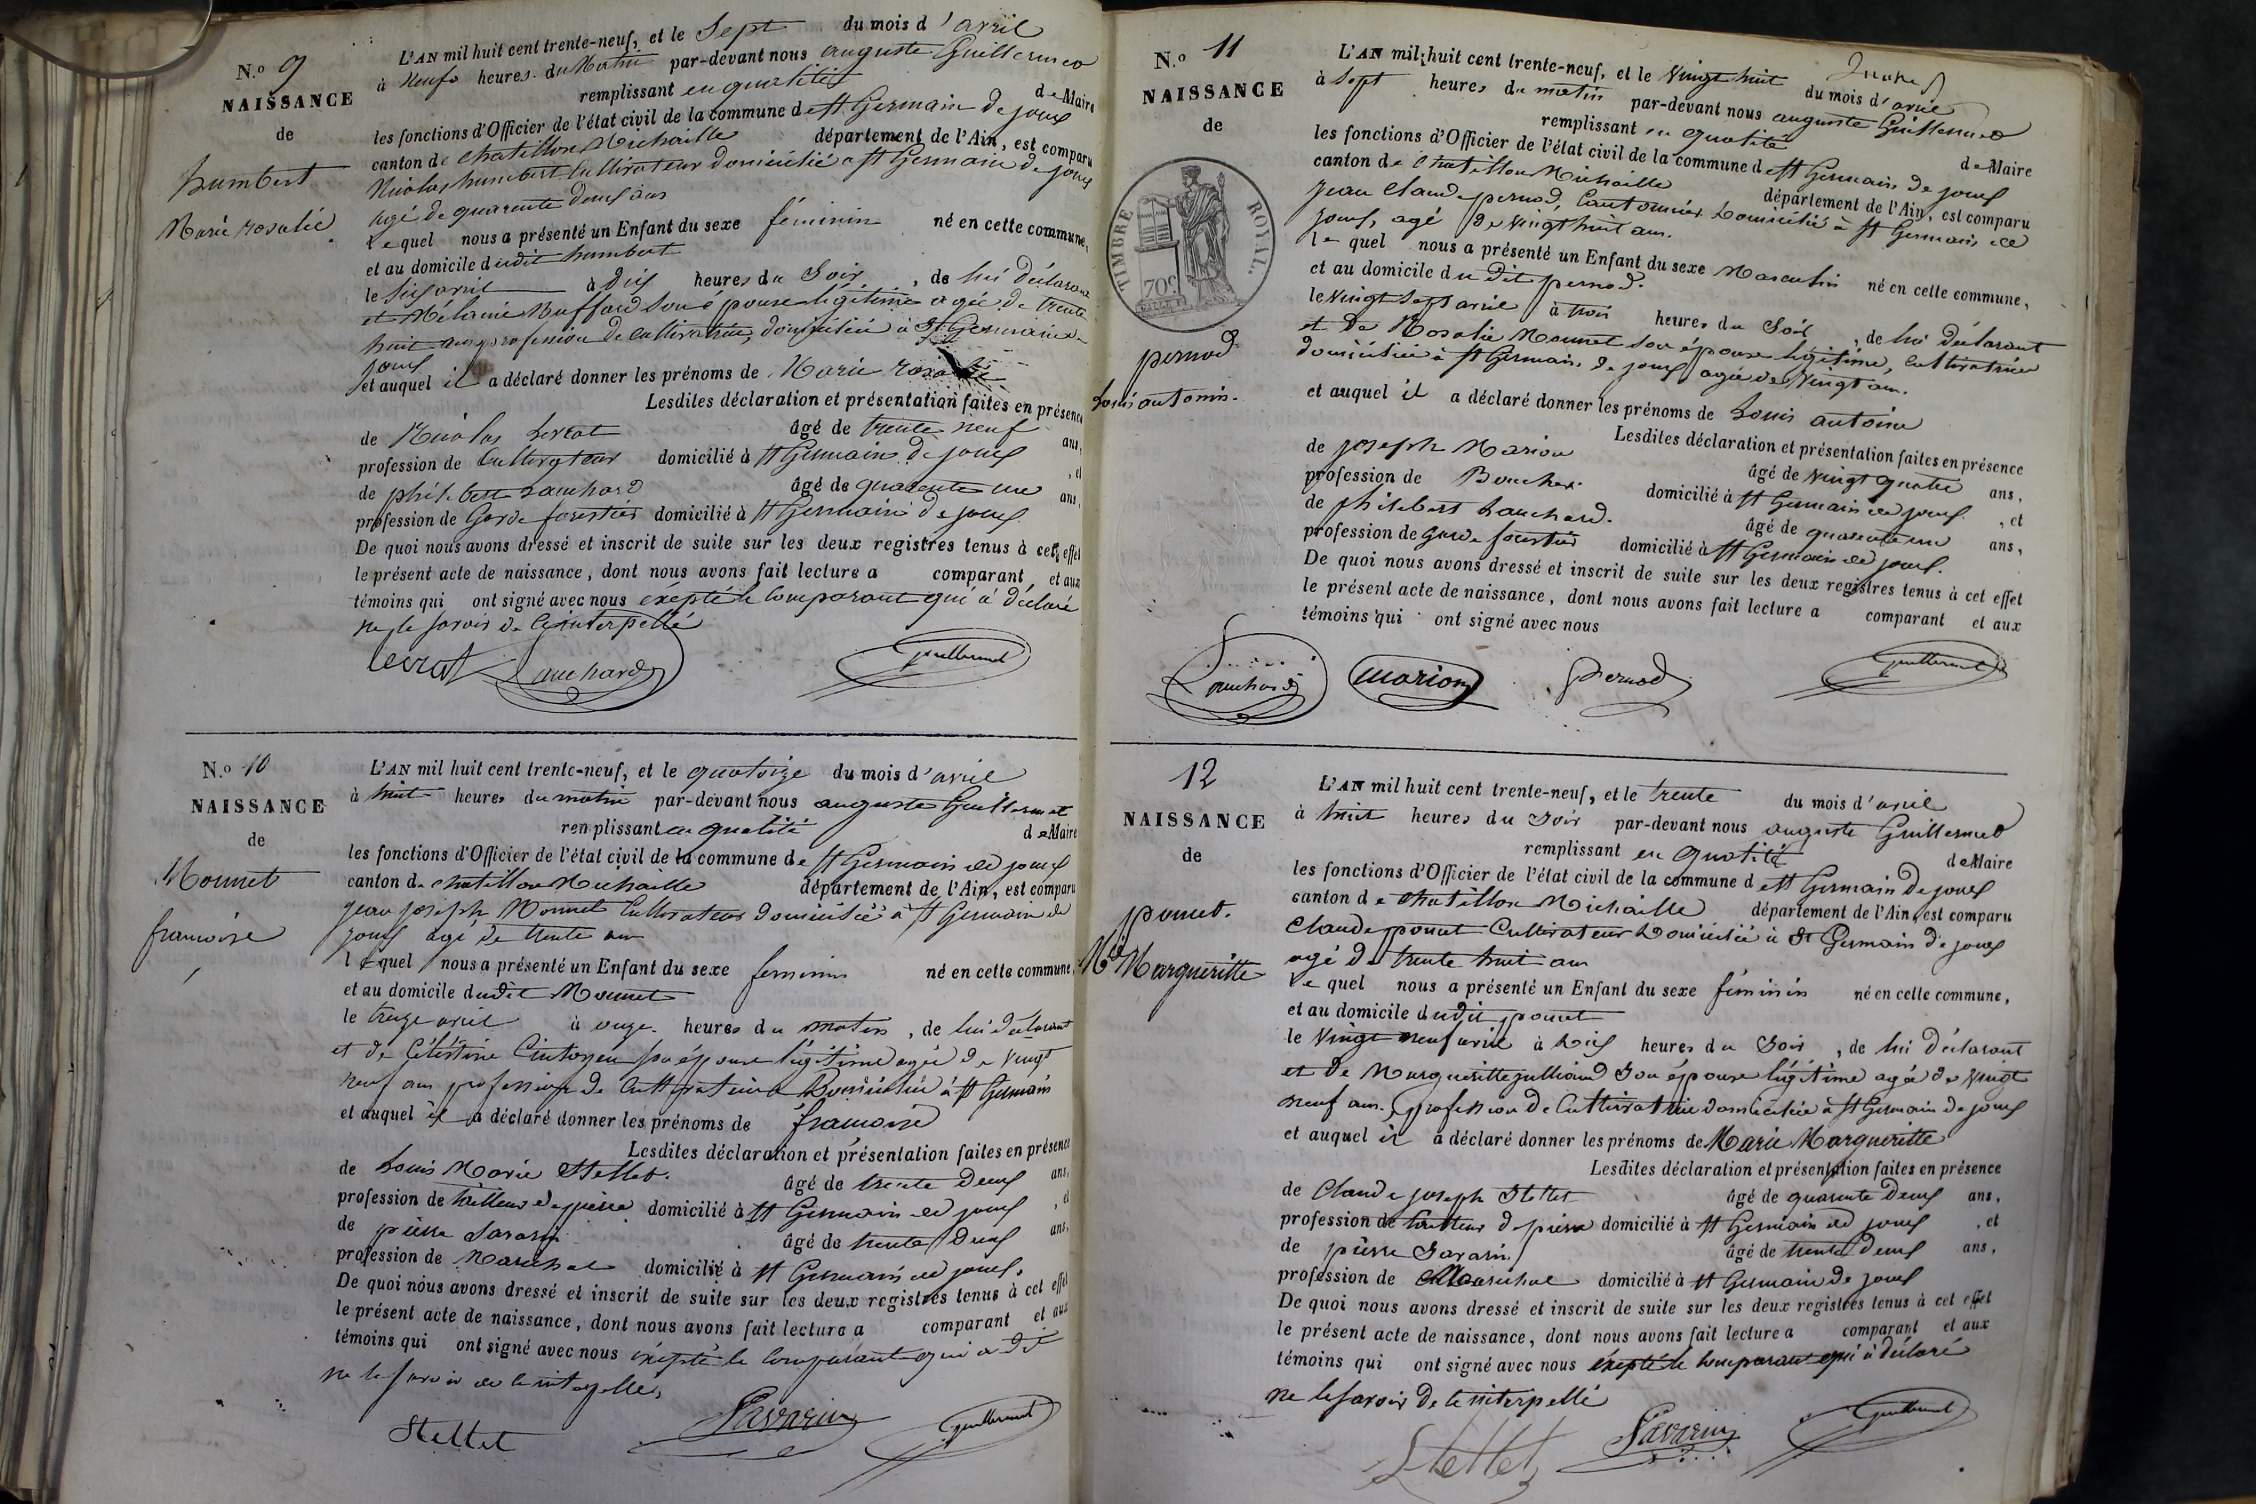 N.o 9
NAISSANCE
de
humbert
Marie rosalie
L'AN mil huit cent trente-neuf, et le Sept du mois d'avril
à neufs heures du Matin par-devant nous auguste Guillermet
remplissant en qualité de Maire
les fonctions d'Officier de l'état civil de la commune de St Germain de joux
canton de Chatillon Michaille département de l'Ain, est comparu
Nicolas humbert Cultivateur domicilié a St Germain de joux
agé de quarente deux ans
Le quel nous a présenté un Enfant du sexe féminin né en cette commune,
et au domicile dudit humbert
le Six avril à dix heures du Soir, de lui déclarant
et Mélanie Buffard Son épouse légitime agée de trente
huit ans profession de cultivatrice, domiciliée à St Germain de
joux
et auquel il a déclaré donner les prénoms de Marie rosalie
Lesdites déclaration et présentation faites en présence
de Nicolas Levrat âgé de trente neuf ans,
profession de Cultivateur domicilié à St Germain de joux, et
de philibert Louchard âgé de quarente un ans,
profession de Garde forestier domicilié à St Germain de joux
De quoi nous avons dressé et inscrit de suite sur les deux registres tenus à cet effet
le présent acte de naissance, dont nous avons fait lecture a comparant et aux
témoins qui ont signé avec nous exepté le Comparant qui a déclaré
ne le savoir de ce interpellé
Levrat Louchard Guillermet
N.o 10
NAISSANCE
de
Monnet
françoise
L'AN mil huit cent trente-neuf, et le quatorze du mois d'avril
à huit heures du matin par-devant nous auguste Guillermet
remplissant en qualité de Maire
les fonctions d'Officier de l'état civil de la commune de St Germain de joux
canton de Chatillon Michaille département de l'Ain, est comparu
jean joseph Monnet Cultivateur domicilié à St Germain de
joux agé de trente ans
le quel nous a présenté un Enfant du sexe feminin né en cette commune,
et au domicile dudit Monnet
le treize avril à onze heures du matin, de lui déclarant
et de Céléstine Cintoyen son épouse légitime agée de vingt
neuf ans profession de Cultivatrice Domiciliée à St Germain
et auquel il a déclaré donner les prénoms de françoise
Lesdites déclaration et présentation faites en présence
de Louis Marie Stellet. âgé de trente deux ans,
profession de tailleur de pierre domicilié à St Germain de joux, et
de pierre Savarin âgé de trente deux ans,
profession de Maréchal domicilié à St Germain de joux.
De quoi nous avons dressé et inscrit de suite sur les deux registres tenus à cet effet
le présent acte de naissance, dont nous avons fait lecture a comparant et aux
témoins qui ont signé avec nous exepté le Comparant qui a dit
ne le savoir de ce interpellé,
Stellet Savarin Guillermet
N.o 11
NAISSANCE
de
TIMBRE ROYAL.
70c
pernod
Louis antonin.
L'AN mil huit cent trente-neuf, et le vingt huit du mois d'avril
à Sept heures du matin par-devant nous auguste Guillermet
remplissant en qualité de Maire
les fonctions d'Officier de l'état civil de la commune de St Germain de joux
canton de Chatillon Michaille département de l'Ain, est comparu
jean Claude pernod, Cantonnier Domicilié à St Germain de
joux, agé de vingt huit ans.
le quel nous a présenté un Enfant du sexe Masculin né en cette commune,
et au domicile du dit pernod.
le vingt Sept avril à trois heures du Soir, de lui déclarant
et de Rosalie Monnet son épouse légitime, cultivatrice
domiciliée à St Germain de joux agée de vingt ans.
et auquel il a déclaré donner les prénoms de Louis antoine
Lesdites déclaration et présentation faites en présence
de joseph Marion âgé de vingt quatre ans,
profession de Boucher. domicilié à St Germain de joux, et
de philibert Louchard. âgé de quarente un ans,
profession de garde forestier domicilié à St Germain de joux.
De quoi nous avons dressé et inscrit de suite sur les deux registres tenus à cet effet
le présent acte de naissance, dont nous avons fait lecture a comparant et aux
témoins qui ont signé avec nous
Louchard Marion Pernod Guillermet
12
NAISSANCE
de
ponet.
Margueritte
L'AN mil huit cent trente-neuf, et le trente du mois d'avril
à huit heures du Soir par-devant nous auguste Guillermet
remplissant en qualité de Maire
les fonctions d'Officier de l'état civil de la commune de St Germain de joux
canton de Chatillon Michaille département de l'Ain, est comparu
Claude ponet Cultivateur Domicilié à St Germain de joux
agé de trente huit ans
Le quel nous a présenté un Enfant du sexe féminin né en cette commune,
et au domicile dudit ponet
le vingt neuf avril à Dix heures du Soir, de lui déclarant
et de Margueritte julliand Son épouse légitime agée de vingt
neuf ans. profession de Cultivatrice domiciliée à St Germain de joux
et auquel il a déclaré donner les prénoms de Marie Margueritte
Lesdites déclaration et présentation faites en présence
de Claude joseph Stellet âgé de quarente deux ans,
profession de tailleur de pierre domicilié à St Germain de joux, et
de pierre Savarin âgé de trente deux ans,
profession de Maréchal domicilié à St Germain de joux
De quoi nous avons dressé et inscrit de suite sur les deux registres tenus à cet effet
le présent acte de naissance, dont nous avons fait lecture a comparant et aux
témoins qui ont signé avec nous exepté le comparant qui à déclaré
ne le savoir de ce interpellé
Stellet Savarin Guillermet